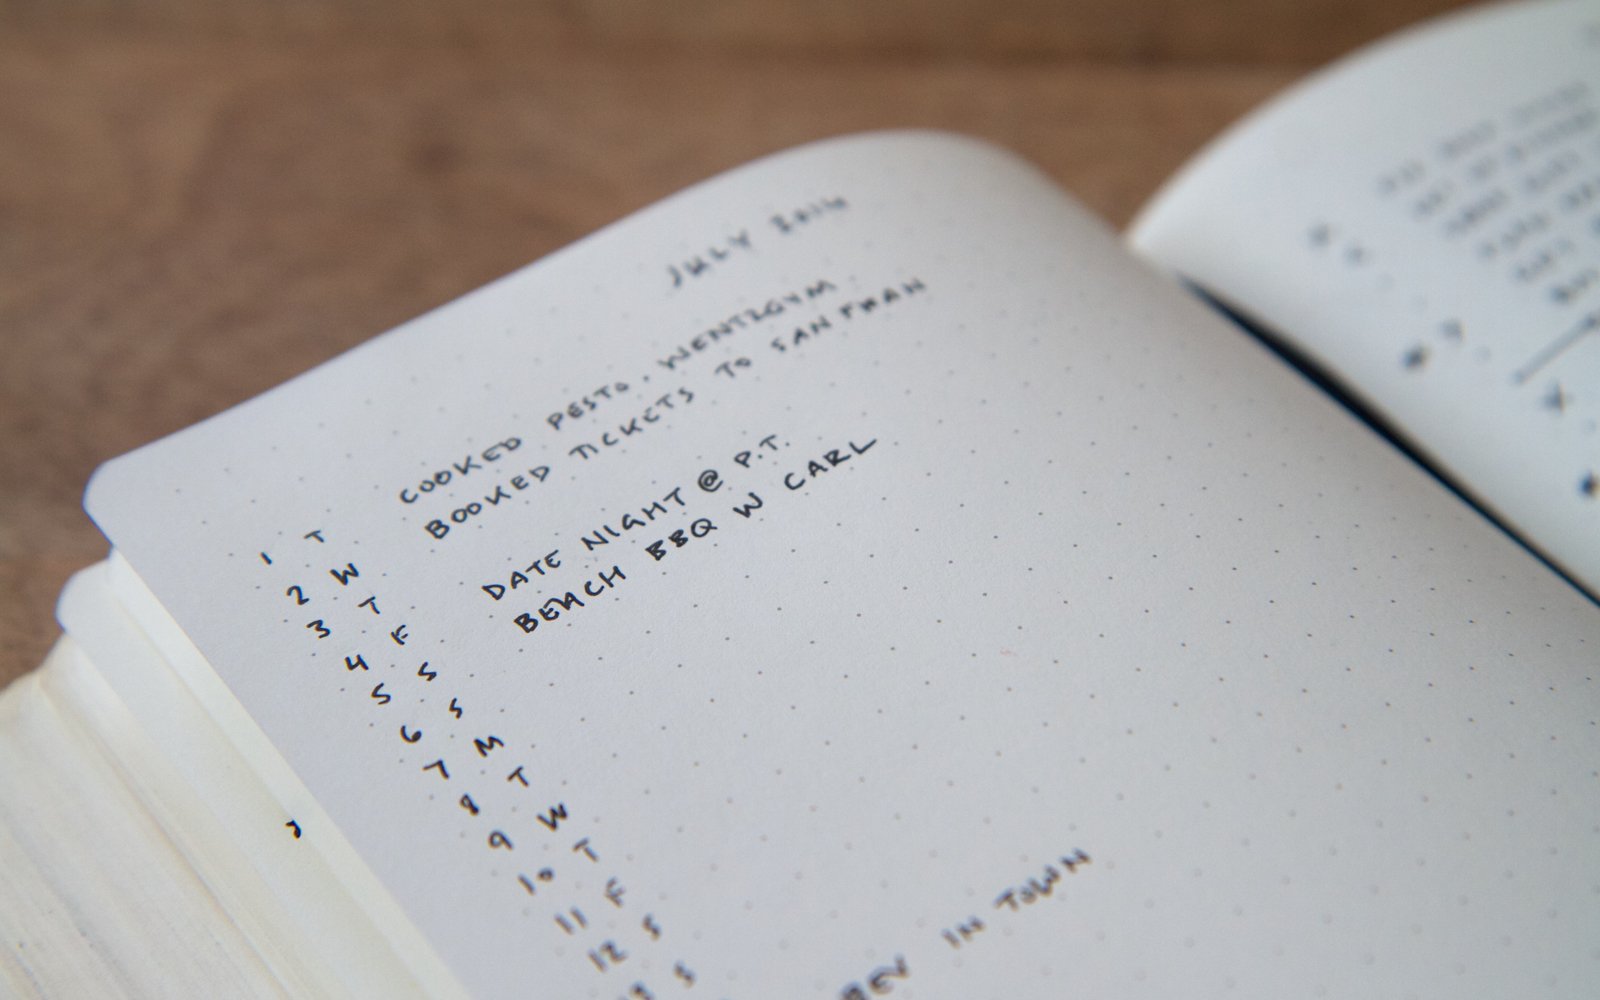 JULY 2014
1 T COOKED PESTO. WENT2GYM
2 W BOOKED TICKETS TO SAN FRAN
3 T
4 F DATE NIGHT @ P.T.
5 S BEACH BBQ W CARL
6 S
7 M
8 T
9 W
10 T
11 F
12 S
13 S
BEV IN TOWN